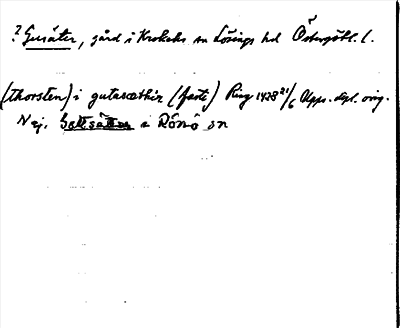 ? Gusäter, gård i Krokeks sn Lösings hd Östergötl. l.
(thorsten) i gutasæthir (faste) Ring 1428 21/6 Upps. dpl. orig.
Nej. i Rönö sn